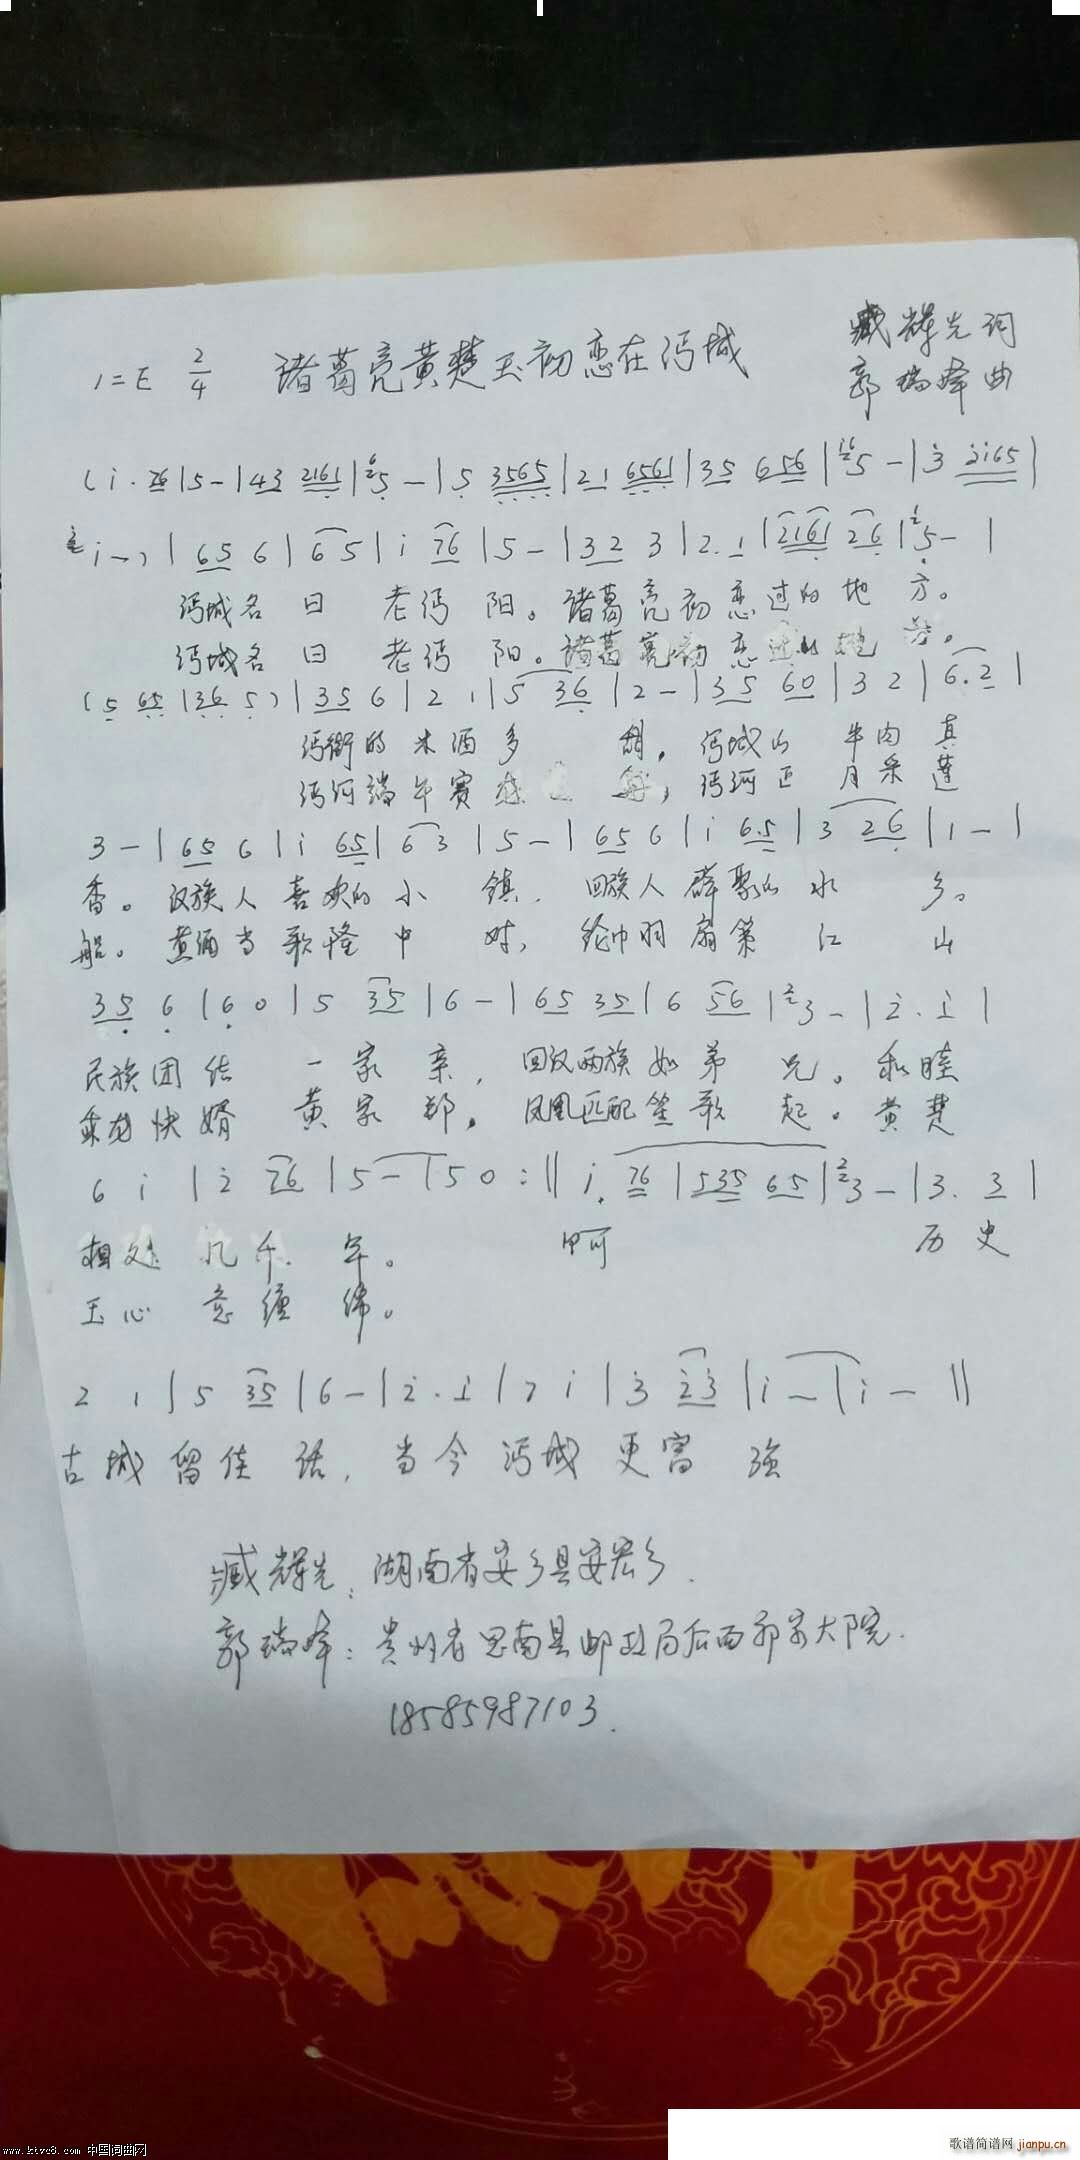 1=E 2/4 诸葛亮黄楚玉初恋在沔城 臧辉先词
郭瑞峰曲
(i· 76|5-|43 2161|5-|5 3565|21 6561|35 656|5-|3 2165|
i-)|65 6|6 5|i 76|5-|32 3|2·1|2161 26|5-|
沔城名曰老沔阳。诸葛亮初恋过的地方。
沔城名曰老沔阳。诸葛亮初恋 地 。
(5 65|36 5)|35 6|2 1|5 36|2-|35 60|3 2|6·2|
沔街的米酒多 甜，沔城的牛肉真
沔河端午赛 ，沔河正月采莲
3-|65 6|i 65|6 3|5-|65 6|i 6·5|3 26|1-|
香。汉族人喜欢的小镇，回族人群聚的水乡。
船。煮酒当歌隆中对，纶巾羽扇策江山
35 6|6 0|5 35|6-|65 35|6 56|3-|2·1|
民族团结一家亲，回汉两族如弟兄。和睦
乘龙快婿黄家郎。凤凰匹配笙歌起。黄楚
6 i|2 76|5-|5 0:||i· 76|535 65|3-|3· 3|
相处几千年。 啊 历史
玉心意缠绵。
2 1|5 35|6-|2·i|7 i|3 23|i-|i-||
古城留佳话，当今沔城更富强
臧辉先：湖南省安乡县安宏乡.
郭瑞峰：贵州省思南县邮政局后面郭家大院.
18585987103.
www.ktvc8.com 中国词曲网
歌谱简谱网 jianpu.cn